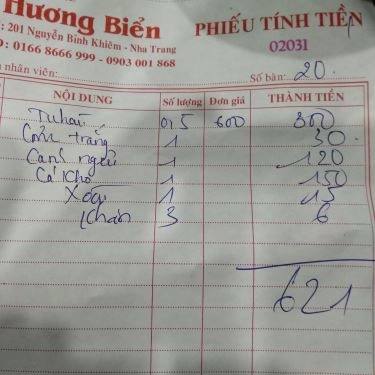 Hương Biển
PHIẾU TÍNH TIỀN
: 201 Nguyễn Bỉnh Khiêm - Nha Trang
: 0166 8666 999 - 0903 001 868
02031
nhân viên: Số bàn: 20
NỘI DUNG Số lượng Đơn giá THÀNH TIỀN
Tu hài 0,5 600 300
Cơm trắng 1 30
Canh ngêu 1 120
Cá kho 1 150
Xoài 1 15
Khăn 3 6
621